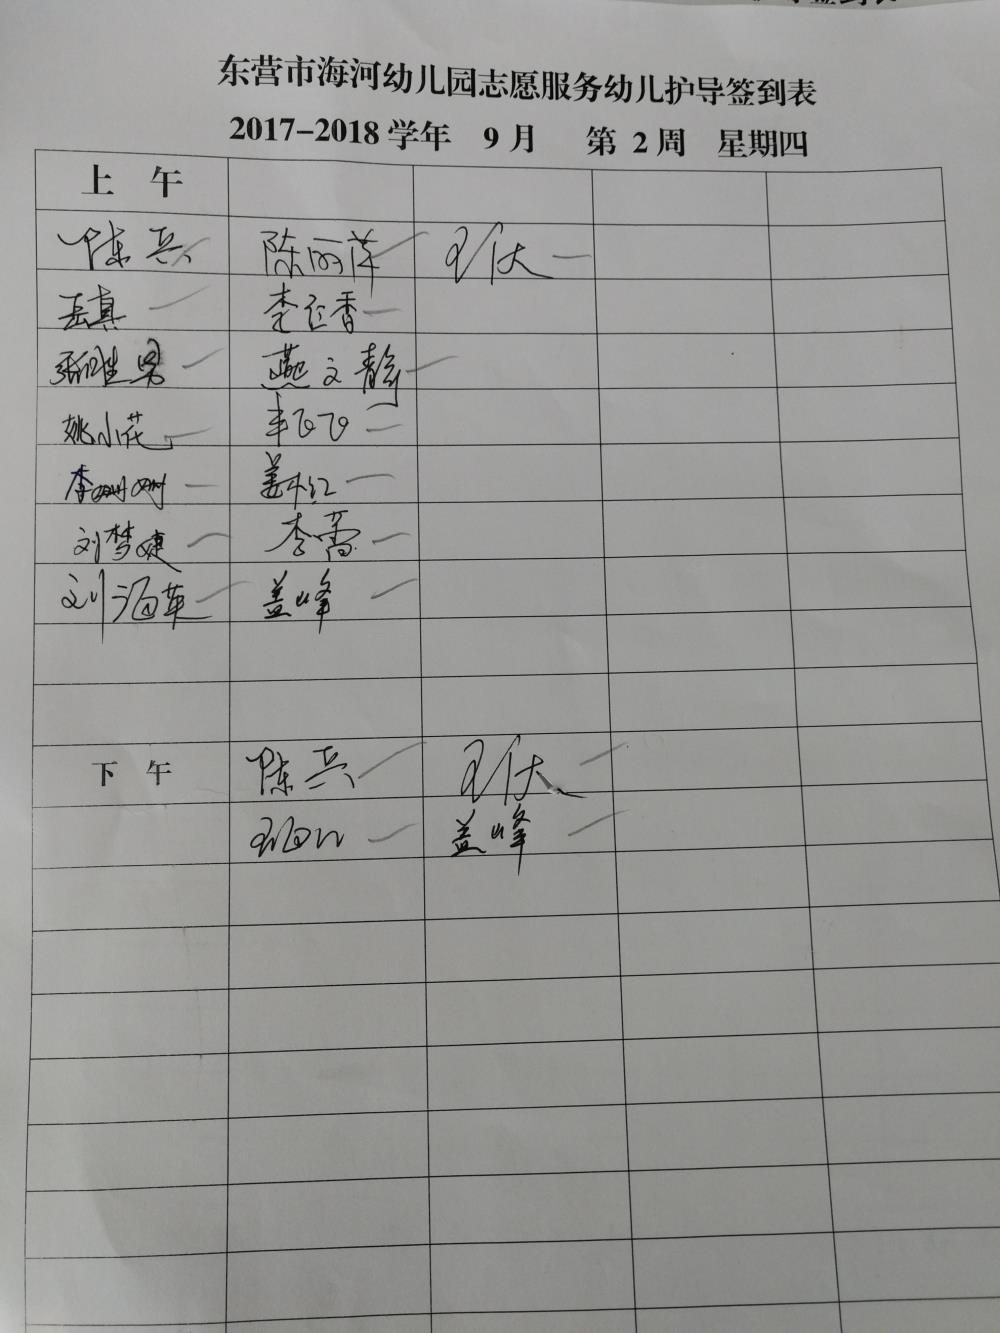 东营市海河幼儿园志愿服务幼儿护导签到表
2017-2018 学年 9 月 第 2 周 星期四
上 午
陈兵 陈丽萍
岳真
张胜男 燕文静
姚小花 丰飞飞
李姗姗 姜红
刘梦婕 李蕾
刘海英 盖峰
下 午 陈兵
盖峰